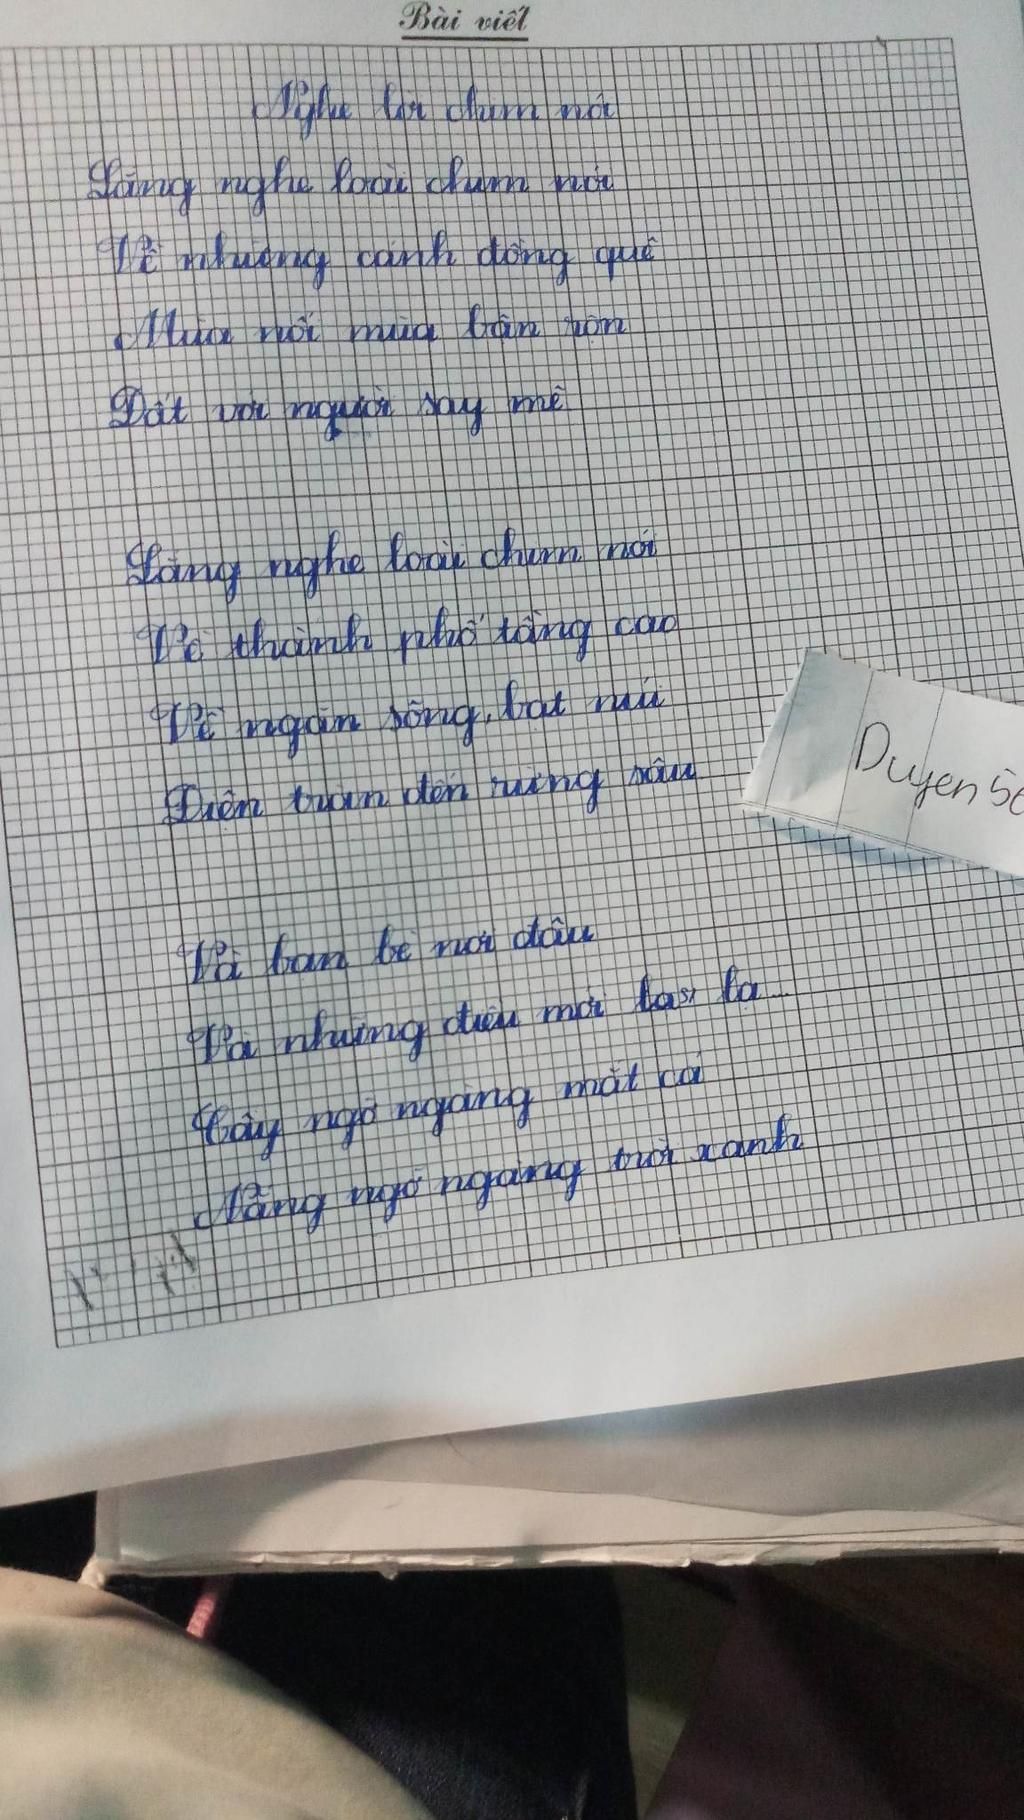 Bài viết
Nghe lời chim nói
Lắng nghe loài chim nói
Về những cánh đồng quê
Mùa nối mùa bận rộn
Đất với người say mê
Lắng nghe loài chim nói
Về thành phố tầng cao
Về ngăn sông, bạt núi
Điện tràn đến rừng sâu
Và bạn bè nơi đâu
Và những điều mới lạ
Cây ngỡ ngàng mắt cá
Nắng ngỡ ngàng trời xanh
Duyen 5c